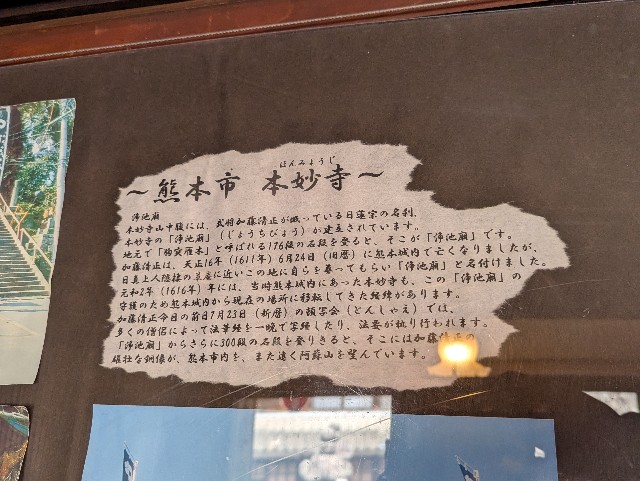 ほんみょうじ
～熊本市 本妙寺～
浄池廟
本妙寺山中腹には、武将加藤清正が眠っている日蓮宗の名刹、
本妙寺の「浄池廟」(じょうちびょう)が建立されています。
地元で「胸突雁木」と呼ばれる176段の石段を登ると、そこが「浄池廟」です。
加藤清正は、天正16年(1611年)6月24日(旧暦)に熊本城内で亡くなりましたが、
日真上人隠棲の草庵に近いこの地に自らを葬ってもらい「浄池廟」と名付けました。
元和2年(1616年)には、当時熊本城内にあった本妙寺も、この「浄池廟」の
守護のため熊本城内から現在の場所に移転してきた経緯があります。
加藤清正命日の前日7月23日(新暦)の頓写会(とんしゃえ)では、
多くの僧侶によって法華経を一晩で写経したり、法要が執り行われます。
「浄池廟」からさらに300段の石段を登りきると、そこには加藤清正の
雄壮な銅像が、熊本市内を、また遠く阿蘇山を望んでいます。